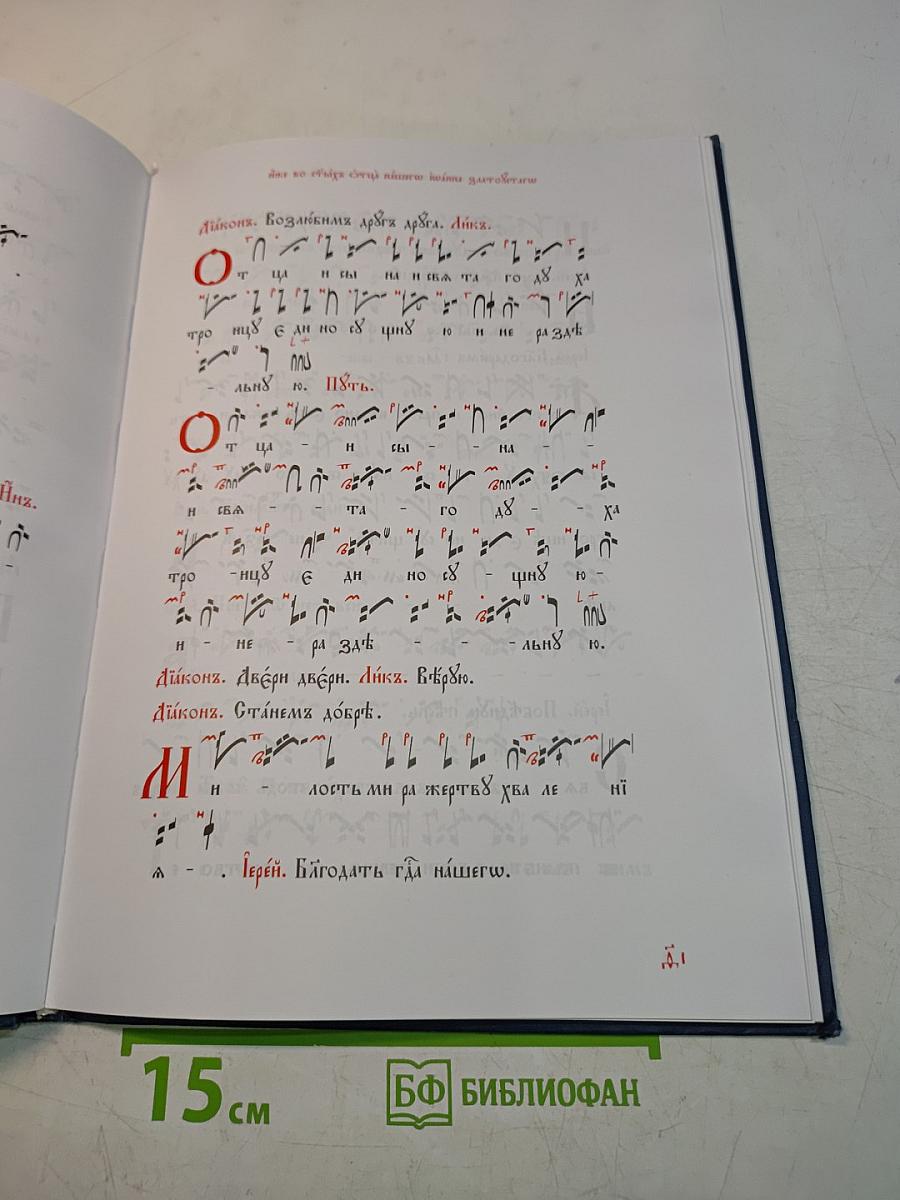 и҆́же во ст҃ы́хъ ѻ҆тца̀ на́шегѡ і҆ѡа́нна златоꙋ́стагѡ
Дїа́конъ. Возлю́бимъ дрꙋ́гъ дрꙋ́га. Ли́къ.
От ца и сы на и свѧ та го дꙋ ха
тро ицꙋ є ди но сꙋ щнꙋ ю и не ра здѣ
- льнꙋ ю. Пꙋ́ть.
От ца - и сы - - на - -
и свѧ - - та - го дꙋ - - ха
тро -ицꙋ є ди но сꙋ - щнꙋ ю -
и - не - ра здѣ - - - льнꙋ ю.
Дїа́конъ. Две́ри две́ри. Ли́къ. Вѣ́рꙋю.
Дїа́конъ. Ста́немъ до́брѣ.
Ми - лость ми ра жертвꙋ хва ле нї
ѧ - . І҆ере́й. Бл҃года́ть гдⷭ҇а на́шегѡ.
д҃і
Н҃нъ.
15 см
БФ БИБЛИОФАН